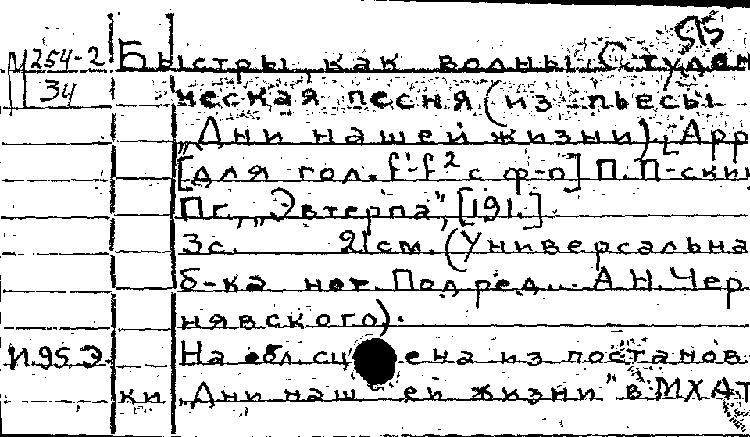 515
М254-2 Быстры, как волны. Студен
34 ческая песня (из пьесы
„Дни нашей жизни). Арр
[для гол. f'-f² с ф-п] П.П-ский
Пг., „Эвтерпа", [191.]
3с. 21см. (Универсальна
б-ка нот. Под ред... А.Н.Чер
нявского).
И.95.Э. На обл. сцена из постанов
ки „Дни нашей жизни" в МХАТ